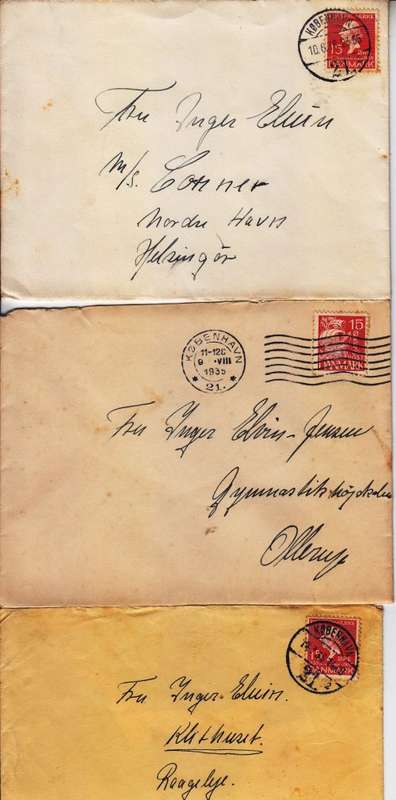 KØBENHAVN
10.6.
15
DANMARK
Fru Inger Elvin
m/s. Conner
Nordre Havn
Helsingör
KØBENHAVN
11-12
9 . VIII
1935
* 21. *
15
DANMARK
Fru Inger Elvin-Jensen
Gymnastikhöjskolen
Ollerup
KØBENHAVN
DANMARK
Fru Inger-Elvin.
Klithuset.
Raageleje.